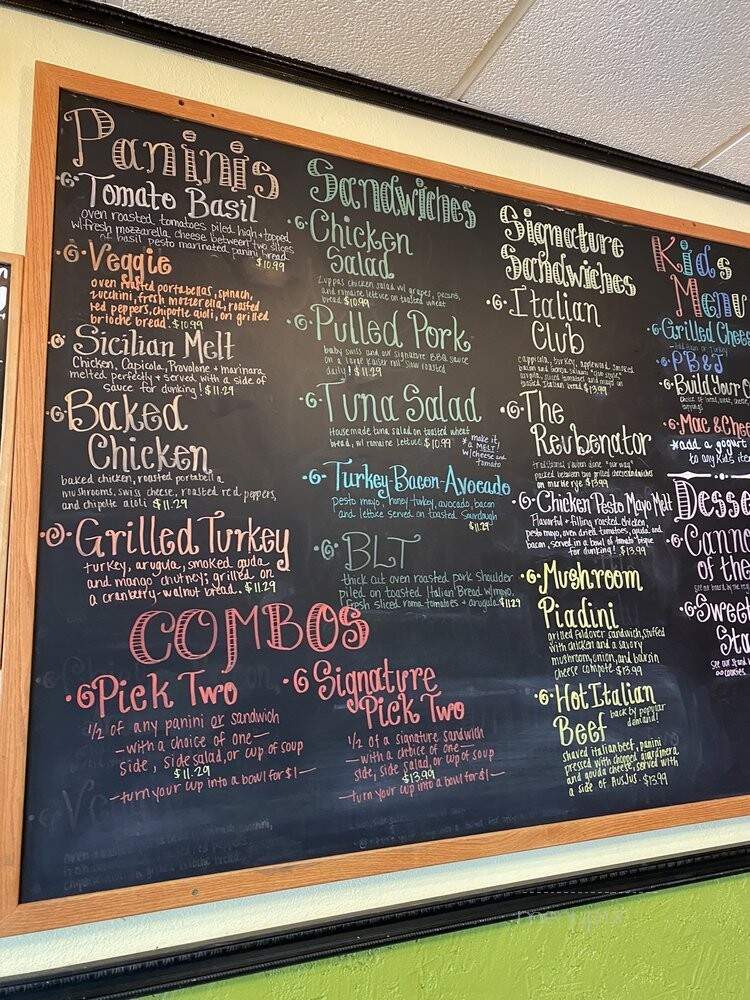 Paninis
Tomato Basil
oven roasted tomatoes piled high + topped
w/ fresh mozzarella cheese between two slices
of basil pesto marinated panini bread
$10.99
Veggie
oven roasted portabellas, spinach,
zucchini, fresh mozzerella, roasted
red peppers, chipotle aioli, on grilled
brioche bread. $10.99
Sicilian Melt
Chicken, Capicola, Provolone + marinara
melted perfectly + served with a side of
sauce for dunking! $11.29
Baked
Chicken
baked chicken, roasted portabella
mushrooms, swiss cheese, roasted red peppers,
and chipotle aioli $11.29
Grilled Turkey
turkey, arugula, smoked guda
and mango chutney; grilled on
a cranberry-walnut bread. $11.29
Sandwiches
Chicken
Salad
Zuppas chicken salad w/ grapes, pecans,
and romaine lettuce on toasted wheat
bread $10.99
Pulled Pork
baby swiss and our signature BBQ sauce
on a large kaiser roll slow roasted
daily! $11.29
Tuna Salad
Housemade tuna salad on toasted wheat
bread, w/ romaine lettuce $10.99
*make it
a MELT!
w/cheese and
tomato
Turkey-Bacon-Avocado
pesto mayo, honey turkey, avocado, bacon
and lettuce served on toasted Sourdough
$11.29
BLT
thick cut oven roasted pork shoulder
piled on toasted Italian Bread w/ mayo,
fresh sliced roma tomatoes + arugula $11.29
COMBOS
Pick Two
1/2 of any panini or sandwich
—with a choice of one—
side, side salad, or cup of soup
$11.29
—turn your cup into a bowl for $1—
Signature
Pick Two
1/2 of a signature sandwich
—with a choice of one—
side, side salad, or cup of soup
$13.99
—turn your cup into a bowl for $1—
Signature
Sandwiches
Italian
Club
cappicola, turkey, applewood smoked
bacon and
toasted Italian bread $13.99
The
Reubenator
traditional rueben done "our way"
packed between two grilled cheese sandwiches
on marble rye $13.99
Chicken Pesto Mayo Melt
Flavorful + filling roasted chicken,
pesto mayo, oven dried tomatoes, gouda, and
bacon, served w/ a bowl of tomato bisque
for dunking! $13.99
Mushroom
Piadini
grilled foldover sandwich, stuffed
with chicken and a savory
mushroom, onion, and boursin
cheese compote $13.99
Hot Italian
Beef
back by popular
demand!
shaved italian beef, panini
pressed with chopped giardinera
and gouda cheese, served with
a side of AusJus. $13.99
Kids
Menu
Grilled Chees
PB&J
Build Your
Mac & Chee
*add a gogurt
to any kids ite
Desse
Canno
of the
Sweet
Sta
cookies